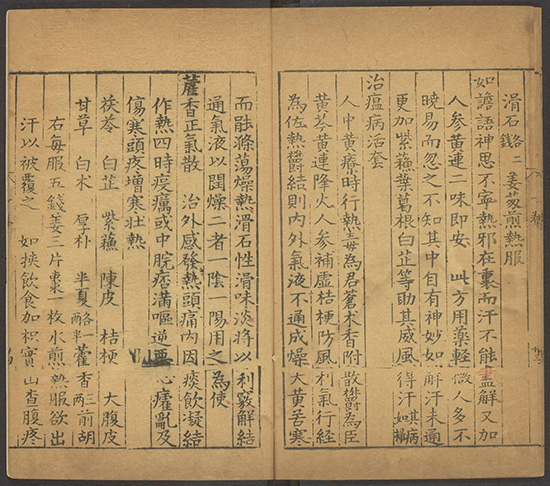 滑石二錢 姜葱煎熱服
如譫語神思不寧熱邪在裏而汗不能盡解又加
人參黃連二味即安 此方用藥輕微人多不
曉易而忽之不知其中自有神妙如解汗未通
更加紫蘓葉葛根白芷等助其威風得汗如掃其病
治瘟病活套
人中黃療時行熱毒為君蒼术香附散欝為臣
黃芩黃連降火人參補虛桔梗防風利氣行經
為佐熱欝結則內外氣液不通成燥大黃苦寒
而能滌蕩燥熱滑石性滑味淡將以利竅解結
通氣液以閏燥二者一陰一陽用之為使
藿香正氣散 治外感發熱頭痛內因痰飲凝結
作熱四時疫癘或中脘痞滿嘔逆惡心癨亂及
傷寒頭疼增寒壯熱
茯苓 白芷 紫蘓 陳皮 桔梗 大腹皮
甘草 白术 厚朴 半夏各兩半 藿香三兩 前胡
右每服五錢姜三片棗一枚水煎熱服欲出
汗以被覆之 如挾飲食加枳實山查腹疼